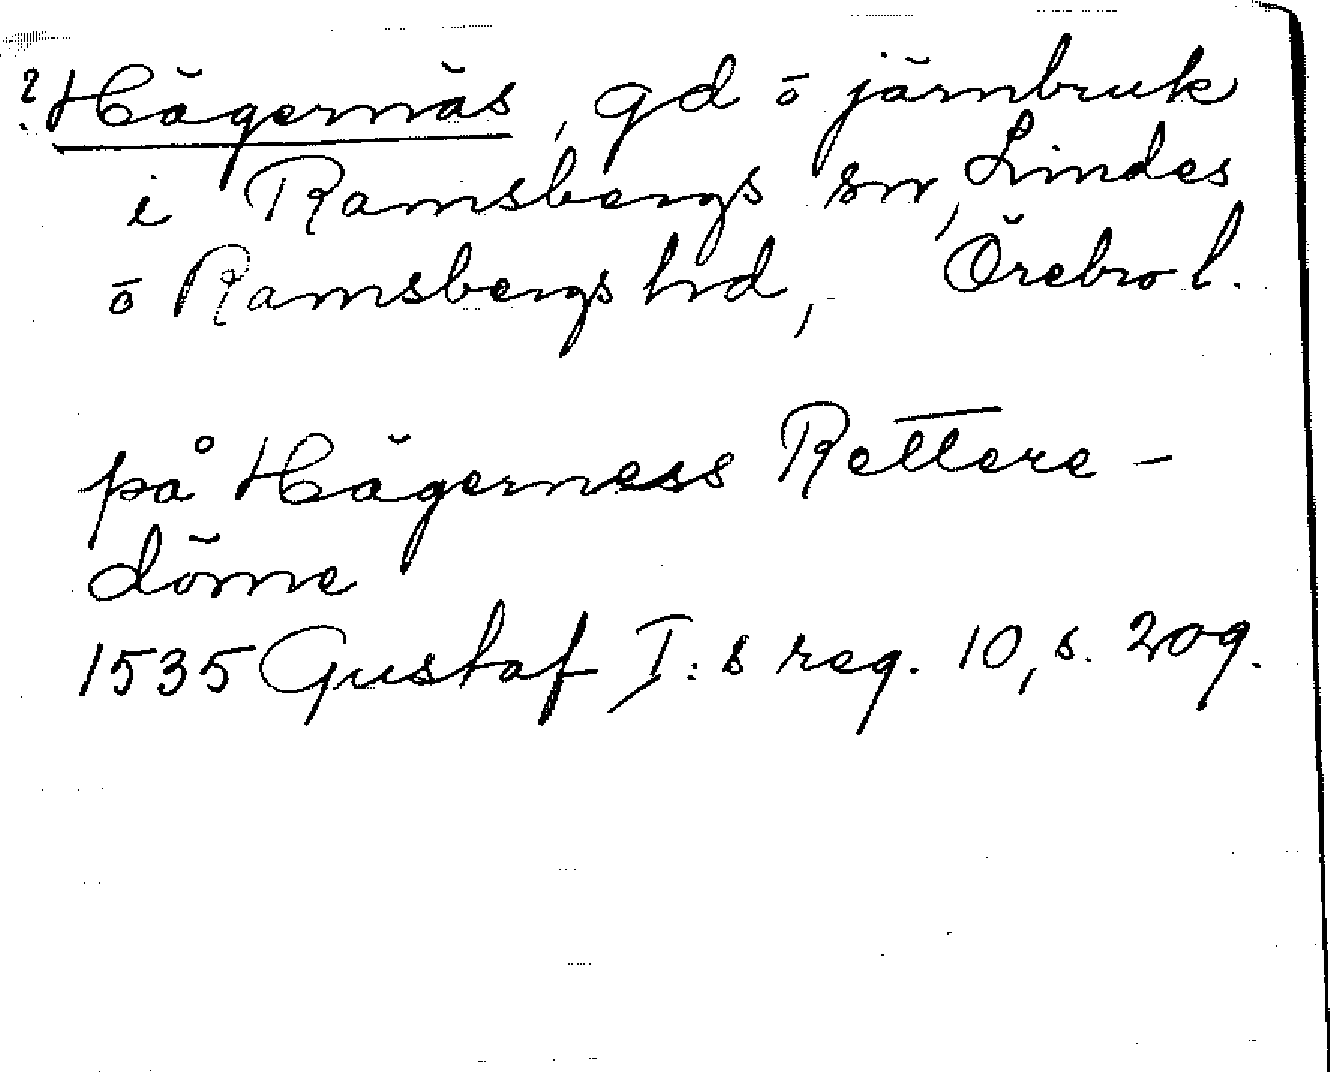 ? Hägernäs, gd ö järnbruk
i Ramsbergs sn, Lindes
ö Ramsbergs hd, Örebro l.
på Hägerness Rettere-
döme
1535 Gustaf I:s reg. 10, s. 209.